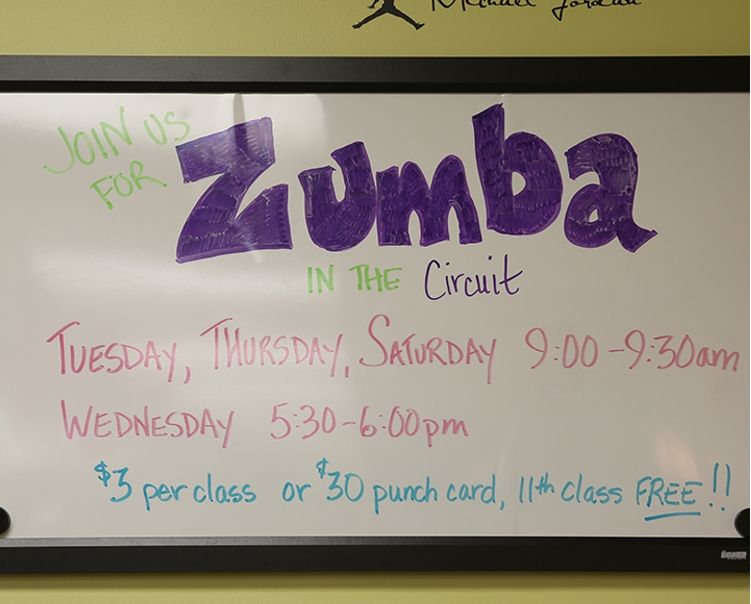 Michael Jordan
JOIN US
FOR
Zumba
IN THE Circuit
TUESDAY, THURSDAY, SATURDAY 9:00-9:30am
WEDNESDAY 5:30-6:00pm
$3 per class or $30 punch card, 11th class FREE!!